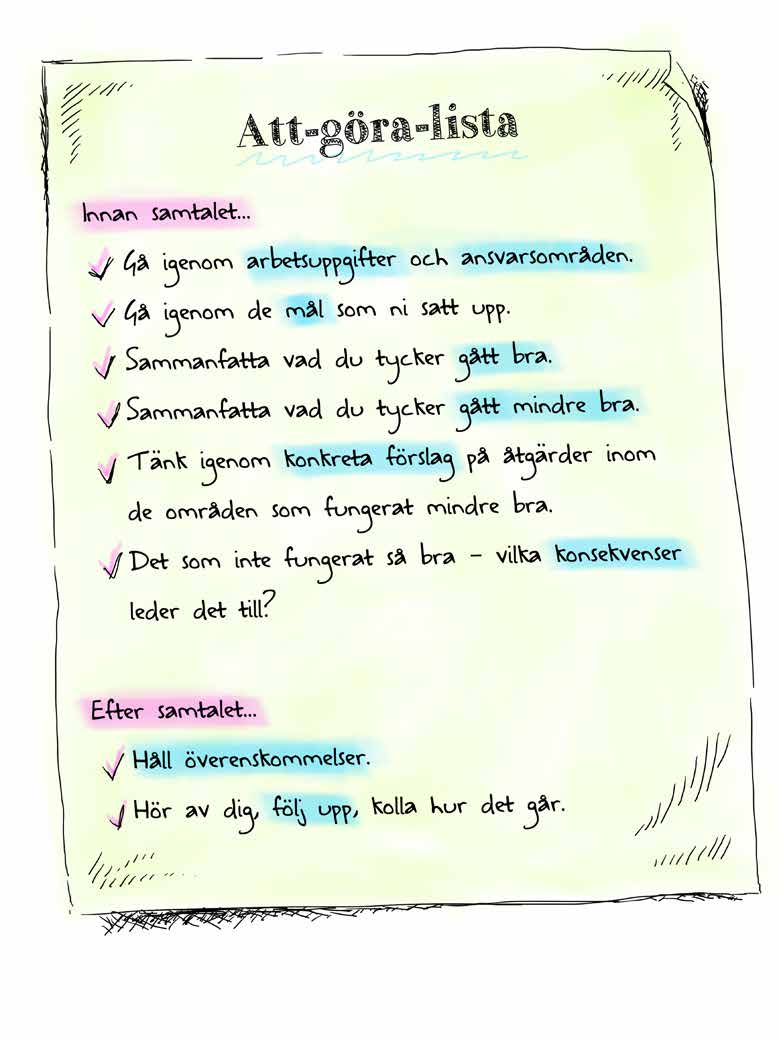 Att-göra-lista
Innan samtalet...
Gå igenom arbetsuppgifter och ansvarsområden.
Gå igenom de mål som ni satt upp.
Sammanfatta vad du tycker gått bra.
Sammanfatta vad du tycker gått mindre bra.
Tänk igenom konkreta förslag på åtgärder inom
de områden som fungerat mindre bra.
Det som inte fungerat så bra – vilka konsekvenser
leder det till?
Efter samtalet...
Håll överenskommelser.
Hör av dig, följ upp, kolla hur det går.